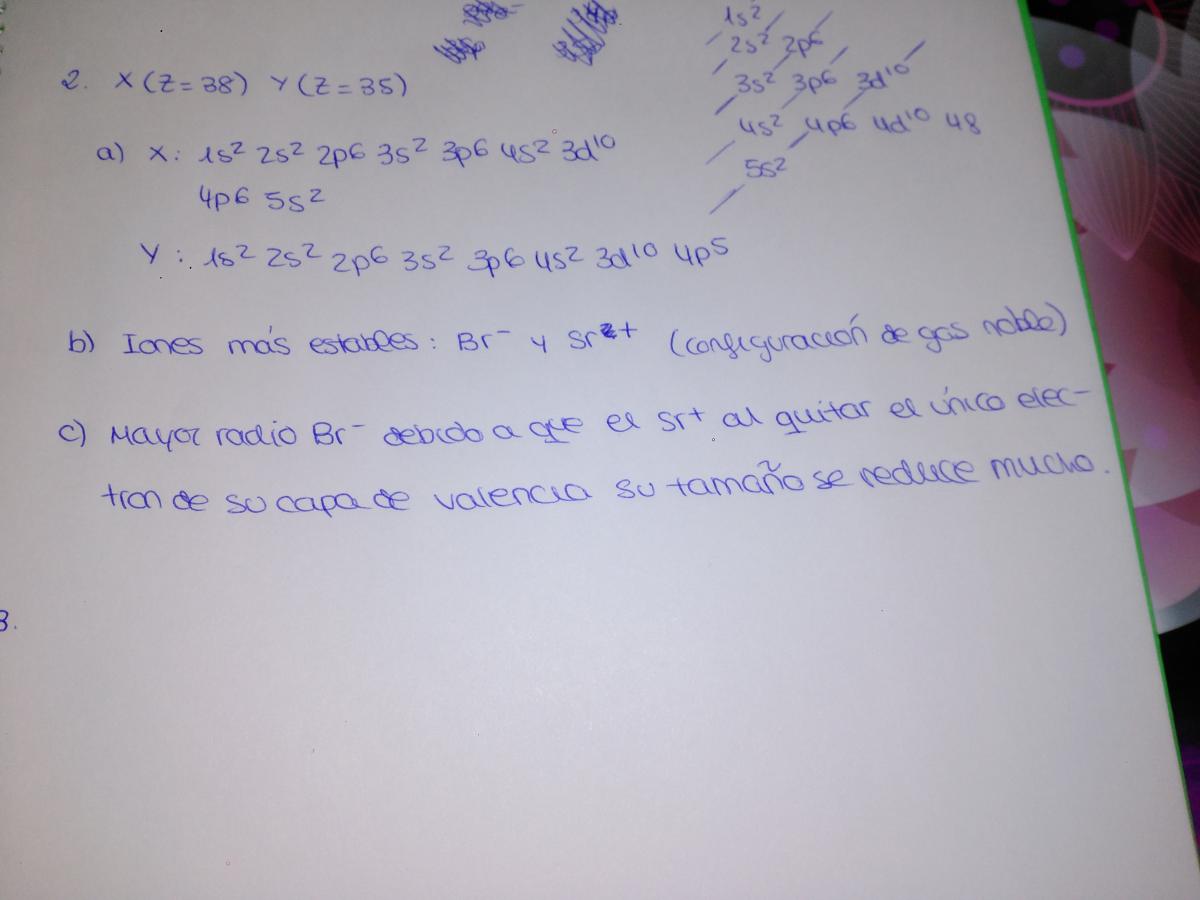 1s² 
2s² 2p6
3s² 3p6 3d¹⁰
4s² 4p6 4d¹⁰ 48
5s²
2. X (Z=38) Y (Z=35)
a) X: 1s² 2s² 2p6 3s² 3p6 4s² 3d¹⁰
4p6 5s²
Y: 1s² 2s² 2p6 3s² 3p6 4s² 3d¹⁰ 4p⁵
b) Iones más estables: Br⁻ y Sr²⁺ (configuración de gas noble)
c) Mayor radio Br⁻ debido a que el Sr⁺ al quitar el único elec-
tron de su capa de valencia su tamaño se reduce mucho.
3.